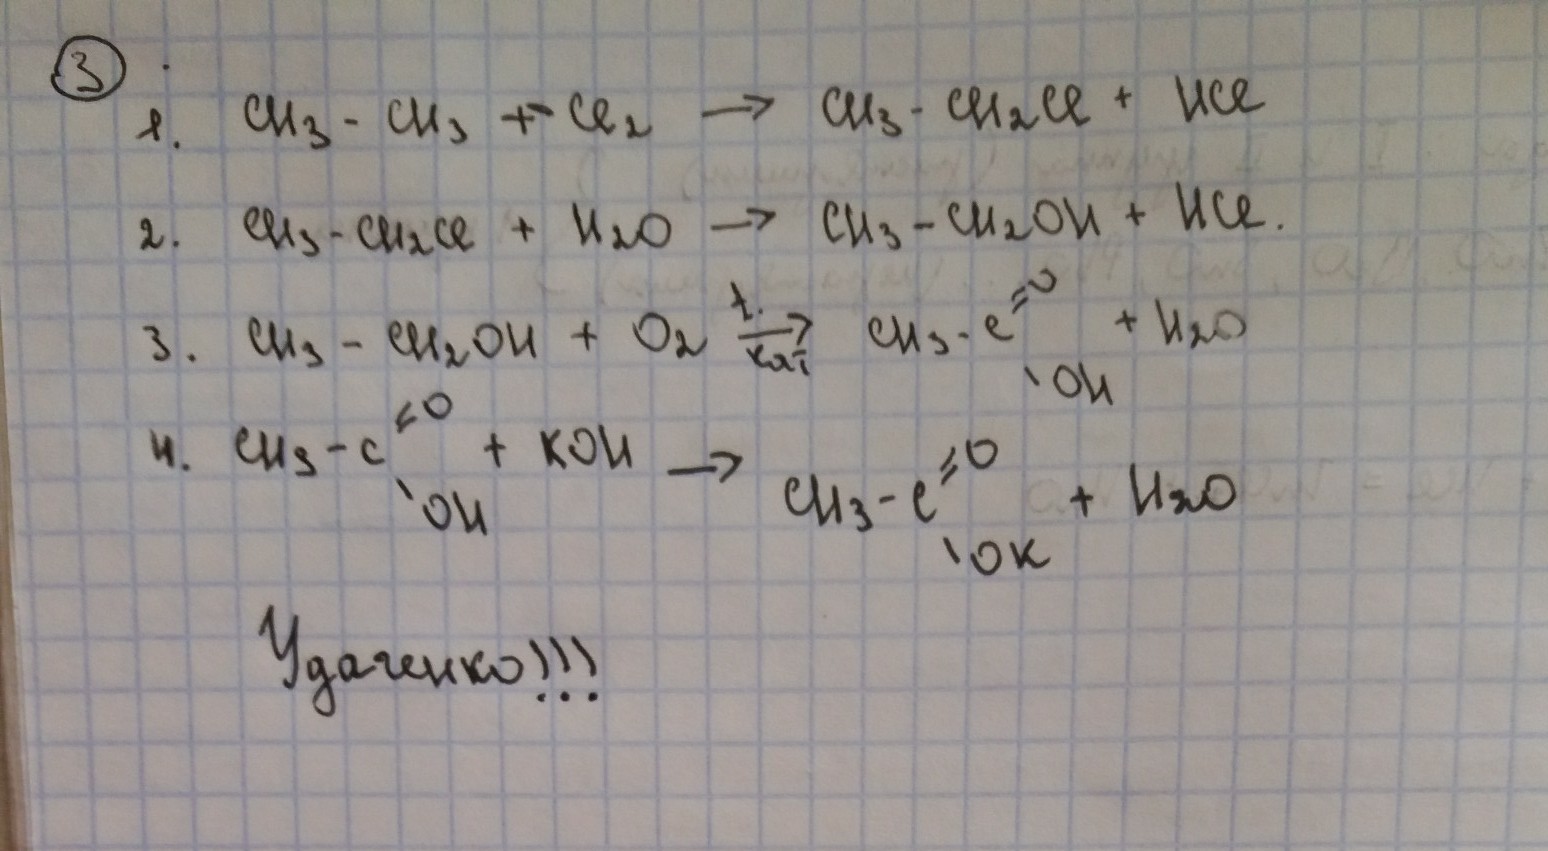 3
1. CH3 - CH3 + Cl2 → CH3 - CH2Cl + HCl
2. CH3 - CH2Cl + H2O → CH3 - CH2OH + HCl.
3. CH3 - CH2OH + O2 t. → кат CH3 - C =O \ OH + H2O
4. CH3 - C =O \ OH + KOH → CH3 - C =O \ OK + H2O
Удаченко!!!